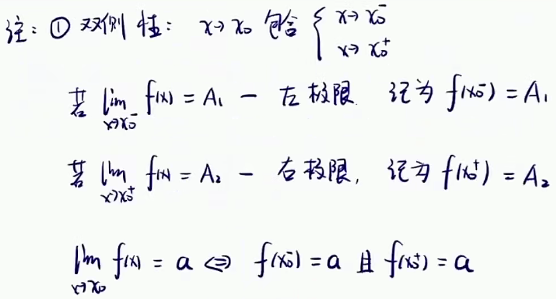 注：① 双侧性： x→x₀ 包含 { x→x₀⁻
x→x₀⁺
若 lim x→x₀⁻ f(x) = A₁ — 左极限. 记为 f(x₀⁻) = A₁
若 lim x→x₀⁺ f(x) = A₂ — 右极限, 记为 f(x₀⁺) = A₂
lim x→x₀ f(x) = a ⇔ f(x₀⁻) = a 且 f(x₀⁺) = a